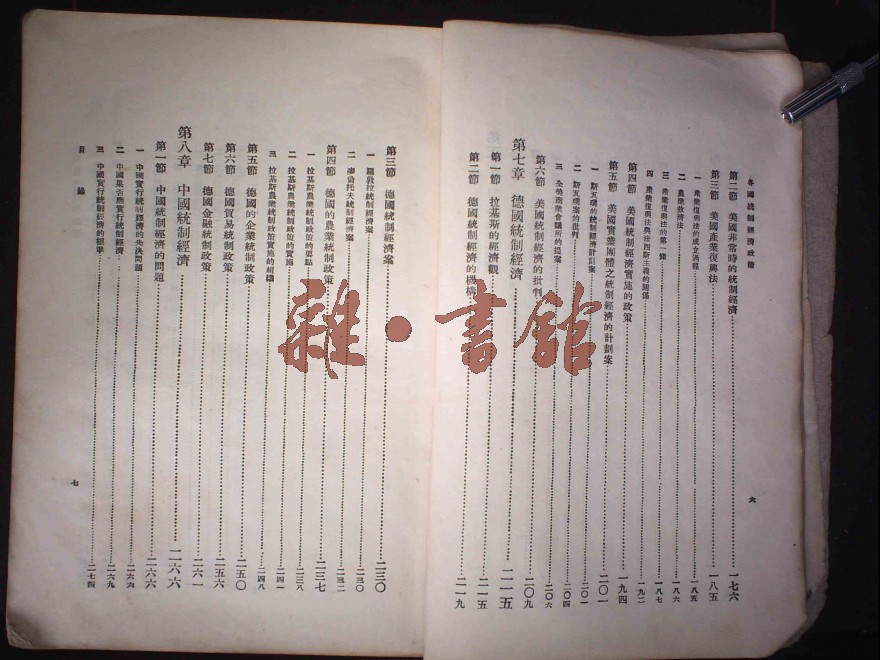 各國統制經濟政策
第二節 美國非常時的統制經濟 一七六
第三節 美國產業復興法 一八五
一 產業復興法的成立過程 一八五
二 農業救濟法 一八六
三 產業復興法的第一條 一八七
四 產業復興法與法西斯主義的關係 一九二
第四節 美國統制經濟實施的政策 一九四
第五節 美國實業團體之統制經濟的計劃案 二〇一
一 斯瓦璞的統制經濟計劃案 二〇一
二 斯瓦璞案的批判 二〇四
三 全美商業會議所的提案 二〇六
第六節 美國統制經濟的批判 二〇九
第七章 德國統制經濟 二一五
第一節 拉基斯的經濟觀 二一五
第二節 德國統制經濟的機構 二一九
六
第三節 德國統制經濟案 二三〇
一 羅敦拉統制經濟案 二三〇
二 麥倫托夫統制經濟案 二三二
第四節 德國的農業統制政策 二三七
一 拉基斯農業統制政策的要點 二三八
二 拉基斯農業統制政策的實施 二四一
三 拉基斯農業統制政策實施的組織 二四八
第五節 德國的企業統制政策 二五〇
第六節 德國貿易統制政策 二五六
第七節 德國金融統制政策 二六一
第八章 中國統制經濟 二六六
第一節 中國統制經濟的問題 二六六
一 中國實行統制經濟的先決問題 二六六
二 中國果否應實行統制經濟 二六九
三 中國實行統制經濟的標準 二七四
目錄
七
雜·書館